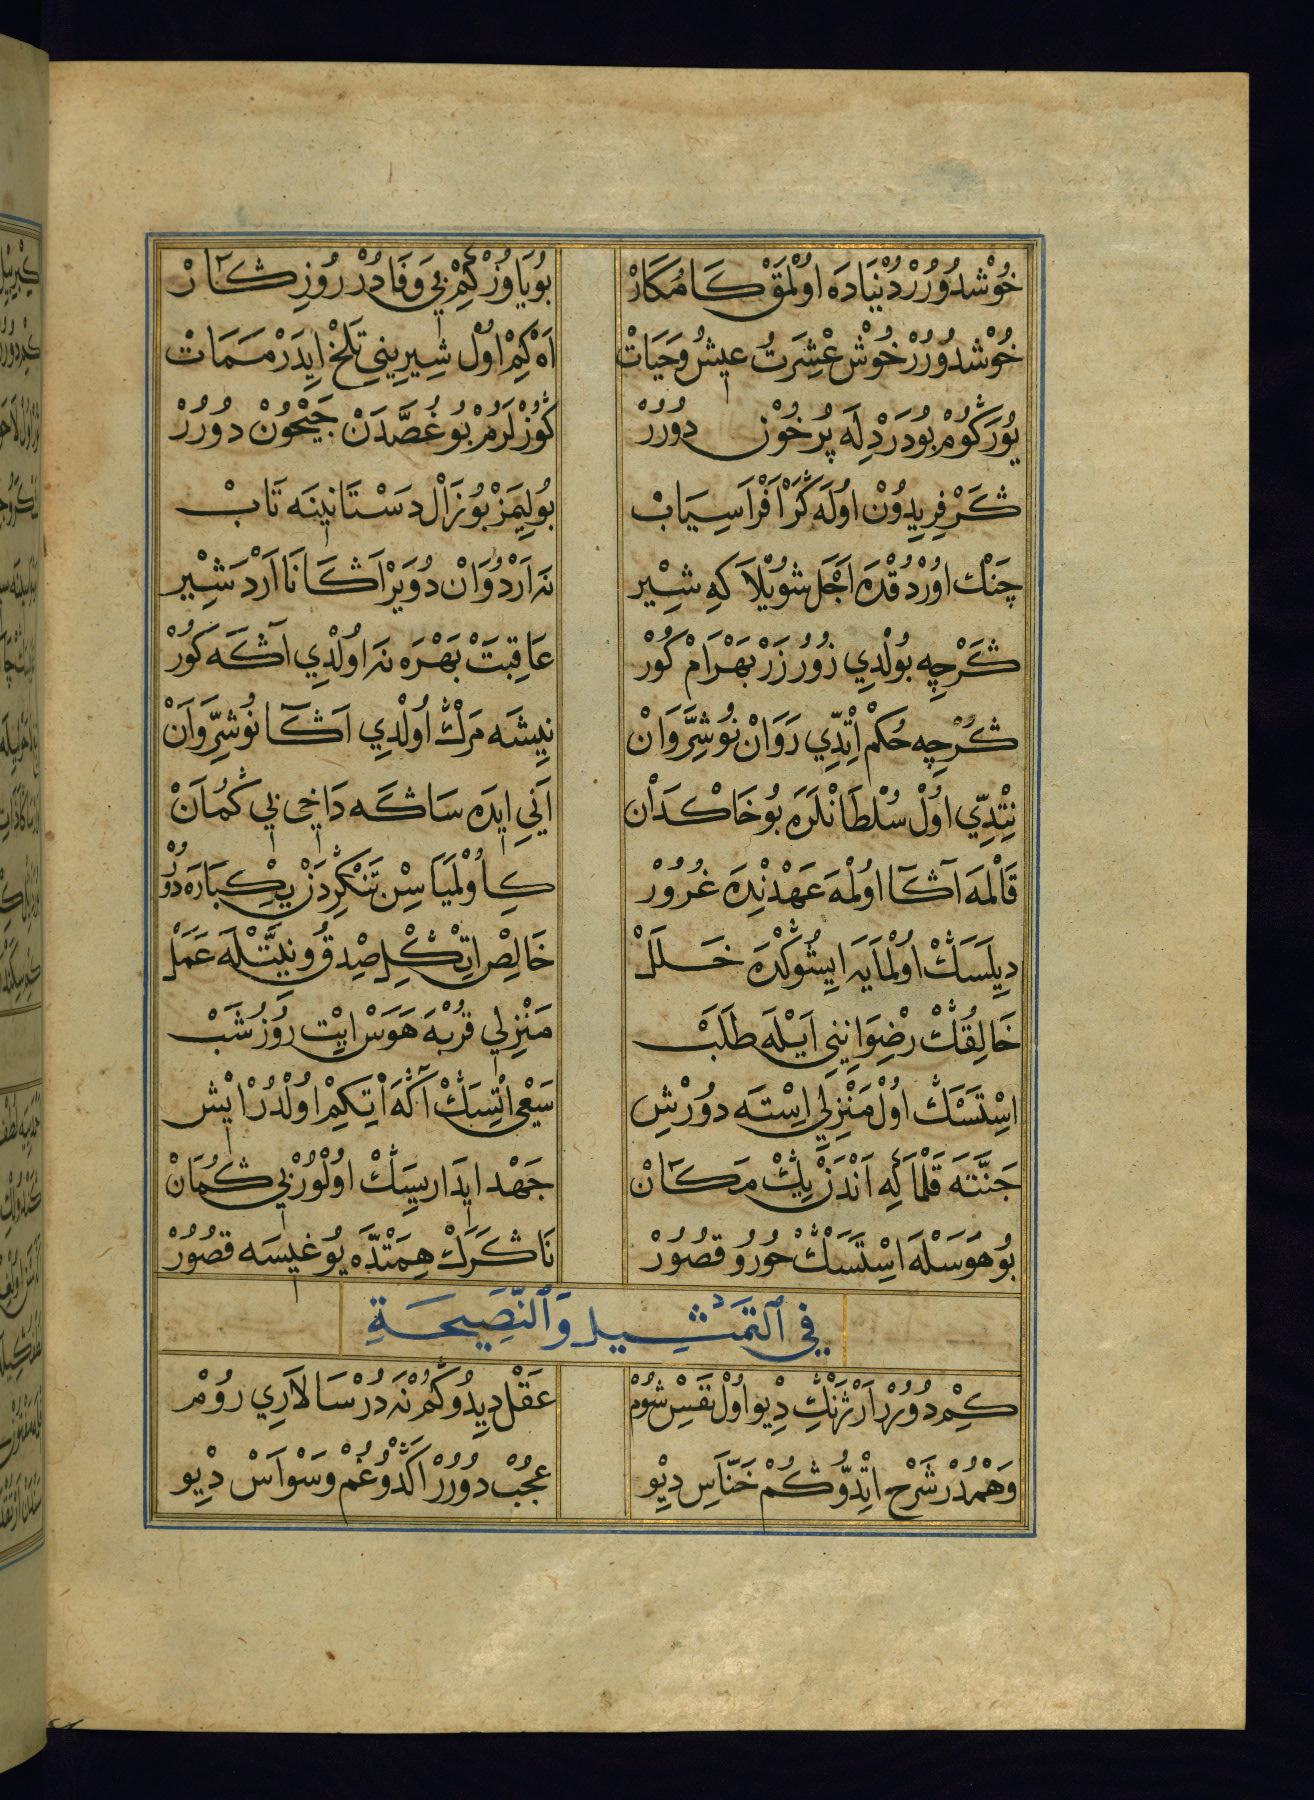 خُوْشدُورُرْ دُنْيَادَه اوُلْمَقْ كَامُكَارْ بُويَاوُزْ كِيمْ بِي وَفَا دُرْ رُوزِكَارْ
خُوْشدُورُرْ خُوشْ عِْشِرَتُ عيشُ وَحَيَاتْ اَه كِيمْ اوُلْ شِيرِينِي تَلخْ اِيدَرْ مَمَاتْ
يُورَكُومْ بُودَرْدِلَه پُرخُوْن دوُرُرْ كُوزْلَرُمْ بُوغُصَّدَنْ جَيْحُونْ دوُرُرْ
ڭَرْ فِرِيدُونْ اوُلَه ڭَرْ اَفْرَاسِيَابْ بُولِيمَزْ بُو زَالْ دَسْتَانِينَه تَابْ
چَنْك اوُرْدُقْدَه اَجَل شوُيْلاَ كَهِ شِيْر نَه اَرْدُوَانْ دُويَرْ اَڭَا نَا اَرْدَشِيْر
ڭَرْچِه بُولْدِي زُورُ زَرْ بَهْرَامْ كُورْ عَاقِبَتْ بَهْرَه نَه اوُلْدِي آڭَه كَوُرْ
ڭَرْچِه حُكمْ اِتْدِّي رَوَانْ نُوشِرَّوَانْ نِيِشَه مَرْك اوُلْدِي اَڭَا نُوشِرَّوَانْ
نِتْدِّي اوُلْ سُلْطَانْلَرَه بُو خَاكدَاْن اَنِي اِيدَه سَاڭَه دَاخِي بِي كُمَانْ
قَالْمَه آڭَا اوُلْمَه عَهْدنْدِه غُرُورْ كِاوُلْمَيَاسِن تَنْكْرِدَنْ يِكْبَارَه دُوْر
دِيلَسَڭْ اوُلْمَايَه اِيشُوكْدَه خَلَلْ خَالِصْ اِتْكْلِ صِدقُ ونيَّتْلَه عَمَلْ
خَالِقُڭْ رِضْوَانِينِي اَيْلَه طَلَبْ مَنْزِلِي قُربْهَ هَوَسْ اِيِت رُوزُ شَبْ
اِسْتَسَڭْ اوُلْ مَنْزِلِي اِسْتَه دوُرْشِ سَعْي اتِْسَڭْ آڭَه اتَكِيْم اوُلْدُرْ اِيْش
جَنَّتَه قَلْمَا كِه اَنْدَنْ يِكْ مَكَانْ جَهْد ايَداريِسَڭْ اوُلُورْ بِي كُمَانْ
بُو هَوَسْلَه اسِْتَسَڭْ حُورُ وقصُورْ نَا ڭَرَكْ هِمَتْدَه يُوغيسَه قصُورْ
فِي ٱلتَّمْثِيلِ وَٱلنَّصِيحَةِ
كِمْ دوُرُرْ اَرْژَنْكِ دِيو اوُلْ نَفَسِْ شُومْ عَقْل دِيدُوكُمْ نَه دُرْ سَالاَرِي رُومْ
وَهْمُدُرْ شَرْح اِتْدُوڭُمْ خَنَّاسِ دِيْو عجُبْ دوُرُرْ اَكْدُوغُمْ وَسْوَاسْ دِيْو